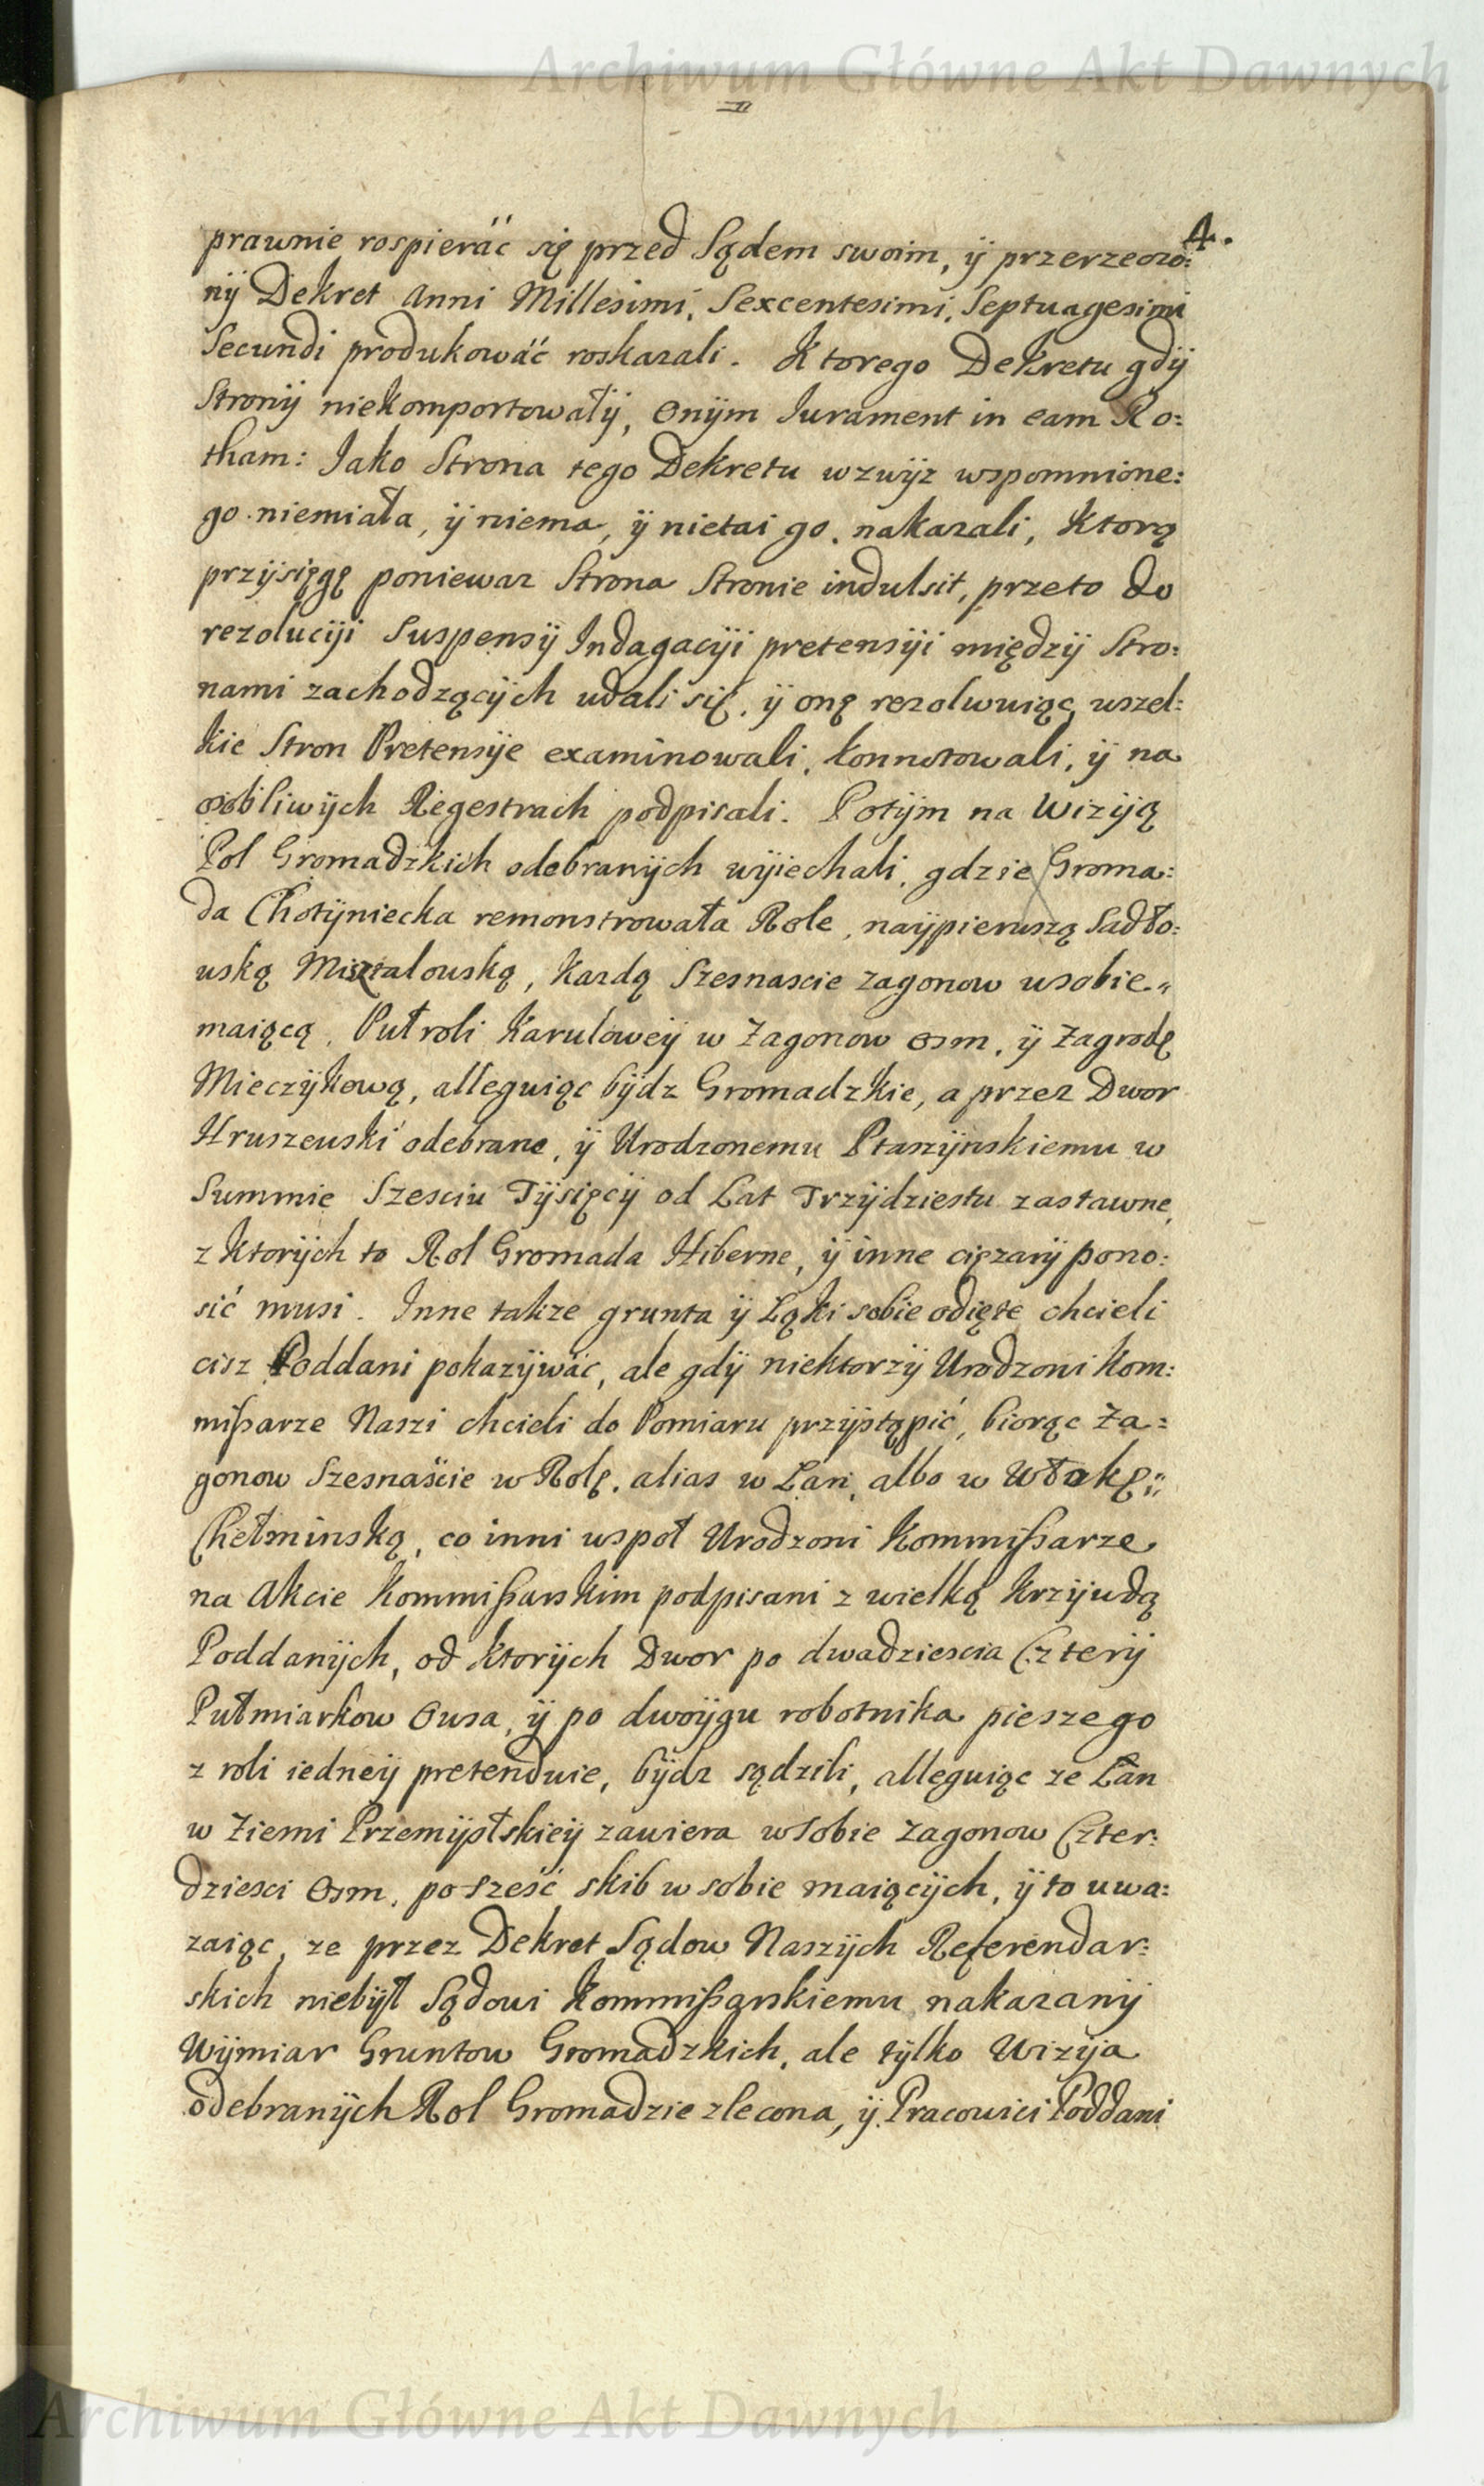 Archiwum Główne Akt Dawnych
4.
prawnie rospierać się przed Sądem swoim, ÿ przerzeczo:
nÿ Dekret Anni Millesimi, Sexcentesimi, Septuagesimi
Secundi produkować roskazali. Ktorego Dekretu gdÿ
Stronÿ niekomportowałÿ, onÿm Jurament in eam Ro:
tham: Jako Strona tego Dekretu wzwÿz wspomnione:
go niemiała, ÿ niema, ÿ nietai go, nakazali, Ktorą
przÿsięgę poniewaz Strona Stronie indulsit, przeto do
rezolucÿi Suspensÿ Indagacÿi pretensÿi międzÿ Stro:
nami zachodzącÿch udali się, ÿ onę rezolwuiąc, wszel:
kie Stron Pretensÿe examinowali, konnotowali, ÿ na
osobliwÿch Regestrach podpisali. Potÿm na Wizÿą
Pol Gromadzkich odebranÿch wÿiechali, gdzie Groma:
da Chotÿniecka remonstrowała Role, naÿpierwszą Sadło:
wską Misztalowską, Kazdą Szesnascie zagonow wsobie
maiącą, Puł roli Karuloweÿ w Zagonow osm, ÿ Zagrodę
Mieczÿkową, alleguiąc bÿdz Gromadzkie, a przez Dwor
Hruszewski odebrane, ÿ Urodzonemu Ptaszÿnskiemu w
Summie Szesciu Tÿsięcÿ od Lat Trzÿdziestu zastawne,
z Ktorÿch to Rol Gromada Hiberne, ÿ inne cięzarÿ pono:
sić musi. Inne takze grunta ÿ Łąki sobie odięte chcieli
cisz Poddani pokazÿwać, ale gdÿ niektorzÿ Urodzoni Kom:
mißarze Naszi chcieli do Pomiaru przÿstąpić, biorąc Za:
gonow Szesnaście w Rolę, alias w Łan, albo w Włokę
Chełminską, co inni wspoł Urodzoni Kommißarze
na Akcie Kommißarskim podpisani z wielką Krzÿwdą
Poddanÿch, od Ktorÿch Dwor po dwadziescia Czterÿ
Pułmiarkow Owsa, ÿ po dwoÿgu robotnika pieszego
z roli iedneÿ pretenduie, bÿdz sądzili, alleguiąc ze Łan
w Ziemi Przemÿslskieÿ zawiera wsobie Zagonow Czter:
dziesci Osm, po sześć skib w sobie maiącÿch, ÿ to uwa:
zaiąc, ze przez Dekret Sądow Naszÿch Referendar:
skich niebÿł Sądowi Kommißarskiemu nakazanÿ
Wÿmiar Gruntow Gromadzkich, ale tÿlko Wizÿa
odebranÿch Rol Gromadzie zlecona, ÿ Pracowici Poddani
Archiwum Główne Akt Dawnych